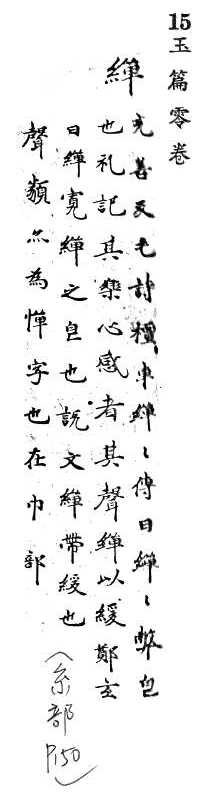 15玉篇零卷
繟
充善反毛詩檀車繟〻傳曰繟〻弊皃
也礼記其樂心感者其聲繟以緩鄭玄
曰繟寬繟之皃也説文繟帶緩也
聲類亦為幝字也在巾部
(糸部
P150)